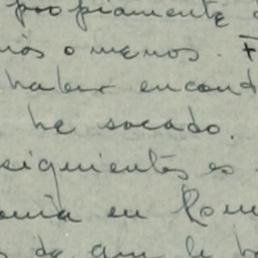 propiamente
más o menos. F
haber encont
he sacado.
siguientes es
en Rom
de que le h